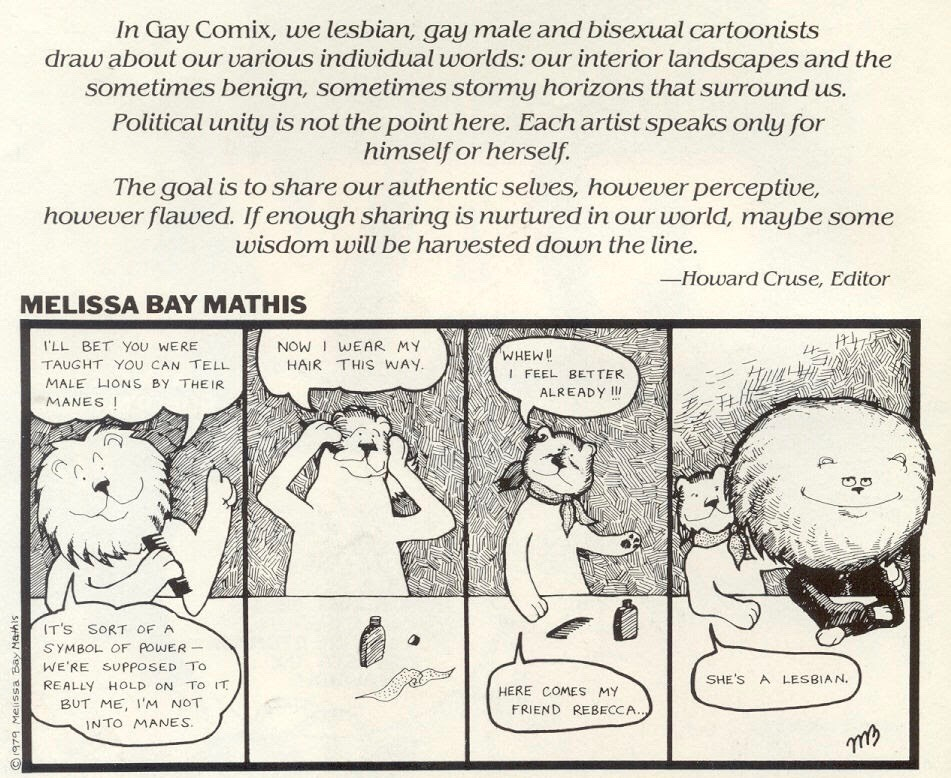 In Gay Comix, we lesbian, gay male and bisexual cartoonists
draw about our various individual worlds: our interior landscapes and the
sometimes benign, sometimes stormy horizons that surround us.
Political unity is not the point here. Each artist speaks only for
himself or herself.
The goal is to share our authentic selves, however perceptive,
however flawed. If enough sharing is nurtured in our world, maybe some
wisdom will be harvested down the line.
—Howard Cruse, Editor
MELISSA BAY MATHIS
I'LL BET YOU WERE
TAUGHT YOU CAN TELL
MALE LIONS BY THEIR
MANES!
IT'S SORT OF A
SYMBOL OF POWER—
WE'RE SUPPOSED TO
REALLY HOLD ON TO IT.
BUT ME, I'M NOT
INTO MANES.
NOW I WEAR MY
HAIR THIS WAY.
WHEW!!
I FEEL BETTER
ALREADY!!!
HERE COMES MY
FRIEND REBECCA...
SHE'S A LESBIAN.
MB
©1979 Melissa Bay Mathis